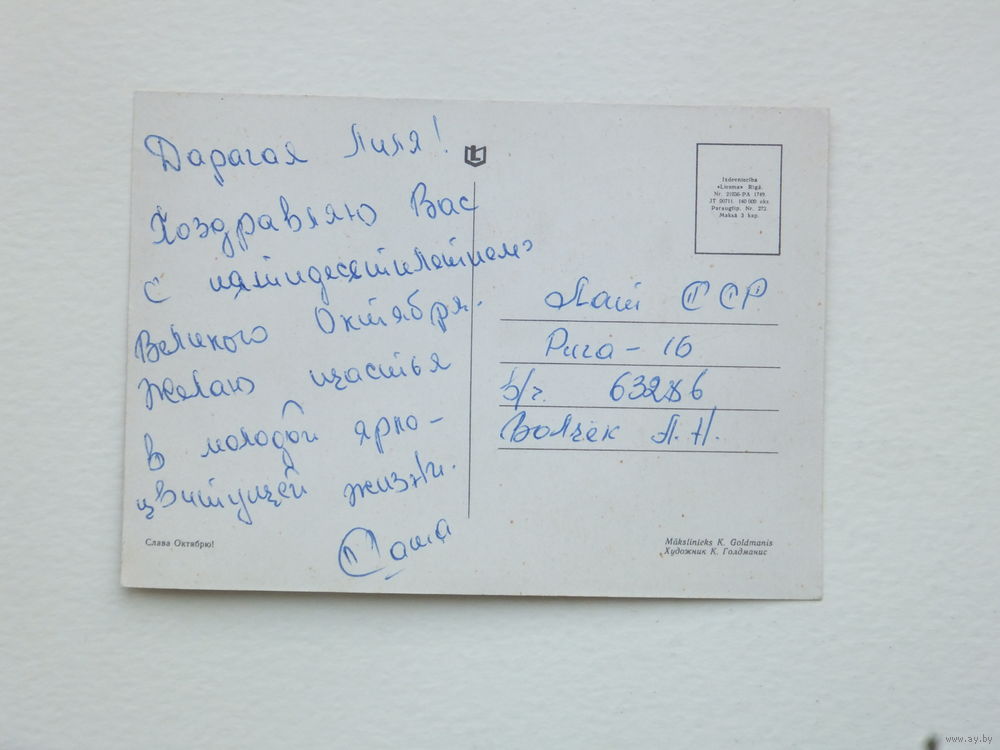 Дарагая Лиля!
Поздравляю Вас
с пятидесятилетием
Великого Октября.
Желаю щастья
в молодой ярко-
цвитущей жизни.
Саша
Слава Октябрю!
L
Izdevniecība
«Liesma» Rīgā.
Nr. 21036-PA 1749.
JT 00711. 140 000 eks.
Paraugtip. Nr. 272
Maksā 3 kap.
Лат ССР
Рига - 16
в/ч. 63286
Волчек Л. Н.
Mākslinieks K. Goldmanis
Художник К. Голдманис
www.ay.by